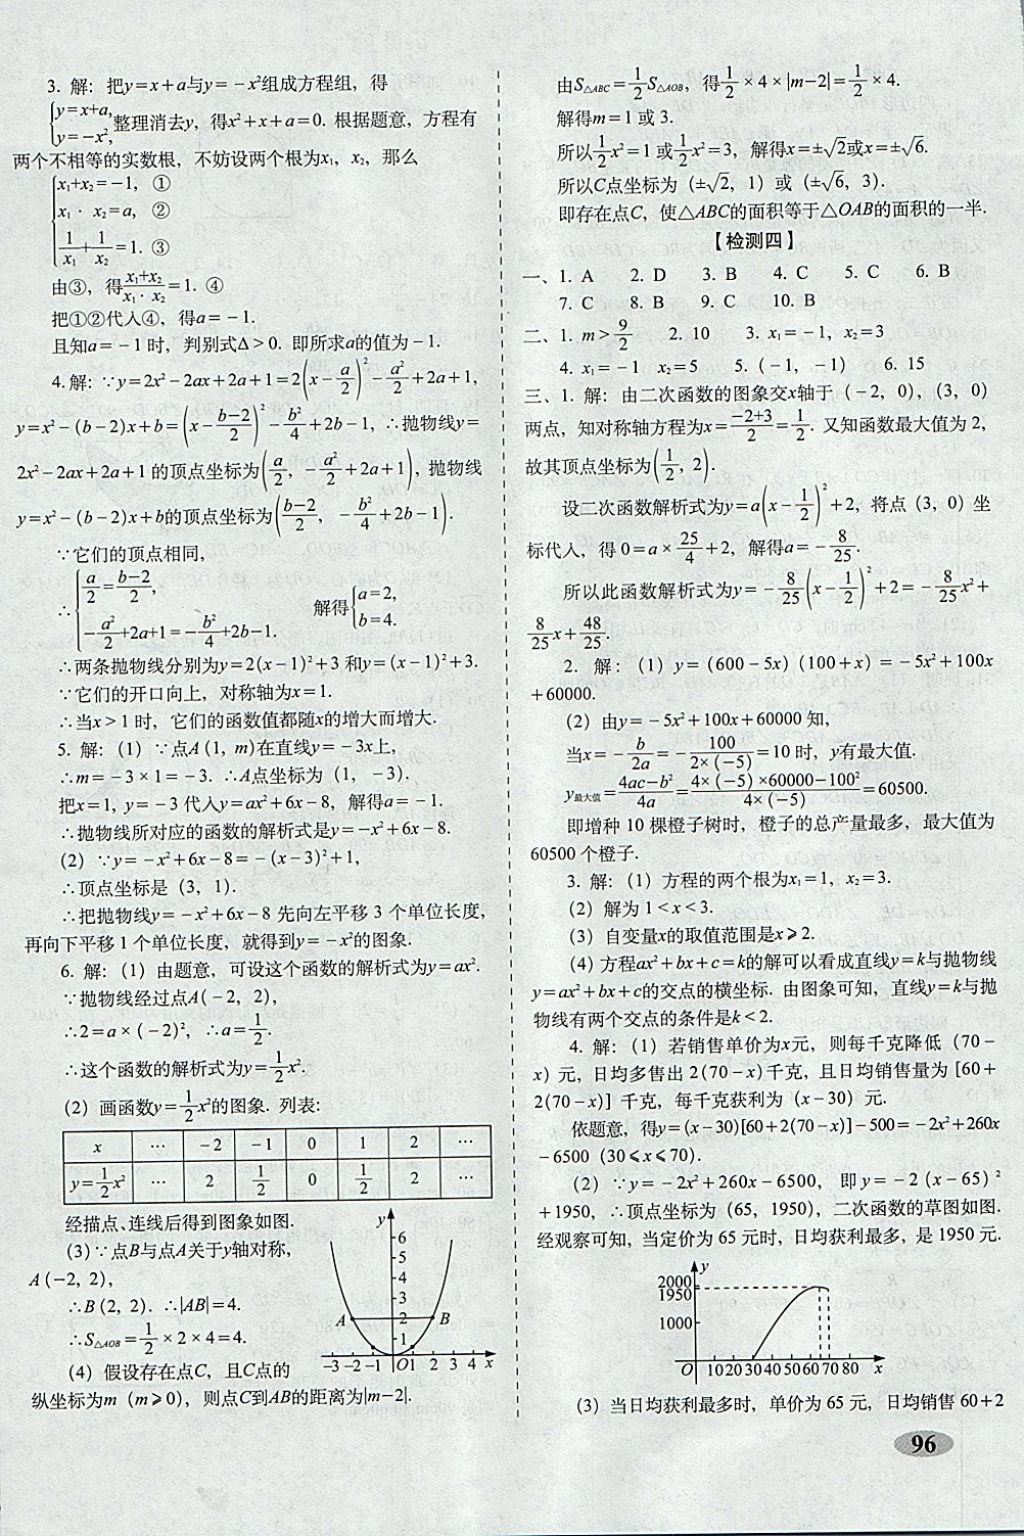 3. 解：把y=x+a与y=-x²组成方程组，得
{y=x+a, y=-x², 整理消去y，得x²+x+a=0. 根据题意，方程有
两个不相等的实数根，不妨设两个根为x₁，x₂，那么
{x₁+x₂=-1，①
x₁·x₂=a，②
1/x₁+1/x₂=1. ③
由③，得(x₁+x₂)/(x₁·x₂)=1. ④
把①②代人④，得a=-1.
且知a=-1时，判别式Δ>0. 即所求a的值为-1.
4.解：∵y=2x²-2ax+2a+1=2(x-a/2)²-a²/2+2a+1,
y=x²-(b-2)x+b=(x-(b-2)/2)²-b²/4+2b-1, ∴抛物线y=
2x²-2ax+2a+1的顶点坐标为(a/2, -a²/2+2a+1), 抛物线
y=x²-(b-2)x+b的顶点坐标为((b-2)/2, -b²/4+2b-1).
∵它们的顶点相同,
∴{a/2=(b-2)/2, -a²/2+2a+1=-b²/4+2b-1. 解得{a=2, b=4.
∴两条抛物线分别为y=2(x-1)²+3和y=(x-1)²+3.
∵它们的开口向上，对称轴为x=1.
∴当x>1时，它们的函数值都随x的增大而增大.
5. 解：(1) ∵点A(1, m)在直线y=-3x上,
∴m=-3×1=-3. ∴A点坐标为（1, -3).
把x=1, y=-3代入y=ax²+6x-8，解得a=-1.
∴抛物线所对应的函数的解析式是y=-x²+6x-8.
(2) ∵y=-x²+6x-8=-(x-3)²+1,
∴顶点坐标是（3, 1).
∴把抛物线y=-x²+6x-8先向左平移3个单位长度,
再向下平移1个单位长度，就得到y=-x²的图象.
6. 解：(1) 由题意，可设这个函数的解析式为y=ax².
∵抛物线经过点A(-2, 2),
∴2=a×(-2)², ∴a=1/2.
∴这个函数的解析式为y=1/2x².
(2) 画函数y=1/2x²的图象. 列表:
x … -2 -1 0 1 2 …
y=1/2x² … 2 1/2 0 1/2 2 …
经描点、连线后得到图象如图.
(3) ∵点B与点A关于y轴对称,
A(-2, 2),
∴B(2, 2). ∴|AB|=4.
∴S△AOB=1/2×2×4=4.
(4) 假设存在点C，且C点的
纵坐标为m（m⩾0)，则点C到AB的距离为|m-2|.
y
6
5
4
3
A 2 B
1
-3 -2 -1 O 1 2 3 4 x
由S△ABC=1/2S△AOB，得1/2×4×|m-2|=1/2×4.
解得m=1或3.
所以1/2x²=1或1/2x²=3，解得x=±√2或x=±√6.
所以C点坐标为（±√2, 1）或（±√6, 3).
即存在点C，使△ABC的面积等于△OAB的面积的一半.
【检测四】
一、1. A 2. D 3. B 4. C 5. C 6. B
7. C 8. B 9. C 10. B
二、1. m>9/2 2. 10 3. x₁=-1, x₂=3
4. x₁=-1 x₂=5 5. (-1, -1) 6. 15
三、1. 解：由二次函数的图象交x轴于（-2, 0), (3, 0)
两点，知对称轴方程为x=(-2+3)/2=1/2. 又知函数最大值为2,
故其顶点坐标为(1/2, 2).
设二次函数解析式为y=a(x-1/2)²+2，将点（3, 0）坐
标代人，得0=a×25/4+2，解得a=-8/25.
所以此函数解析式为y=-8/25(x-1/2)²+2=-8/25x²+
8/25x+48/25.
2. 解：(1) y=(600-5x)(100+x)=-5x²+100x
+60000.
(2) 由y=-5x²+100x+60000知,
当x=-b/2a=-100/(2×(-5))=10时，y有最大值.
y最大值=(4ac-b²)/4a=(4×(-5)×60000-100²)/(4×(-5))=60500.
即增种10棵橙子树时，橙子的总产量最多，最大值为
60500个橙子.
3. 解：(1) 方程的两个根为x₁=1, x₂=3.
(2) 解为1<x<3.
(3) 自变量x的取值范围是x⩾2.
(4) 方程ax²+bx+c=k的解可以看成直线y=k与抛物线
y=ax²+bx+c的交点的横坐标. 由图象可知，直线y=k与抛
物线有两个交点的条件是k<2.
4. 解：(1) 若销售单价为x元，则每千克降低（70-
x）元，日均多售出2(70-x)千克，且日均销售量为[60+
2(70-x)] 千克，每千克获利为（x-30）元.
依题意，得y=(x-30)[60+2(70-x)]-500=-2x²+260x
-6500 (30⩽x⩽70).
(2) ∵y=-2x²+260x-6500，即y=-2(x-65)²
+1950, ∴顶点坐标为（65, 1950)，二次函数的草图如图.
经观察可知，当定价为65元时，日均获利最多，是1950元.
y
2000
1950
1000
O 10 20 30 40 50 60 70 80 x
(3) 当日均获利最多时，单价为65元，日均销售60+2
96